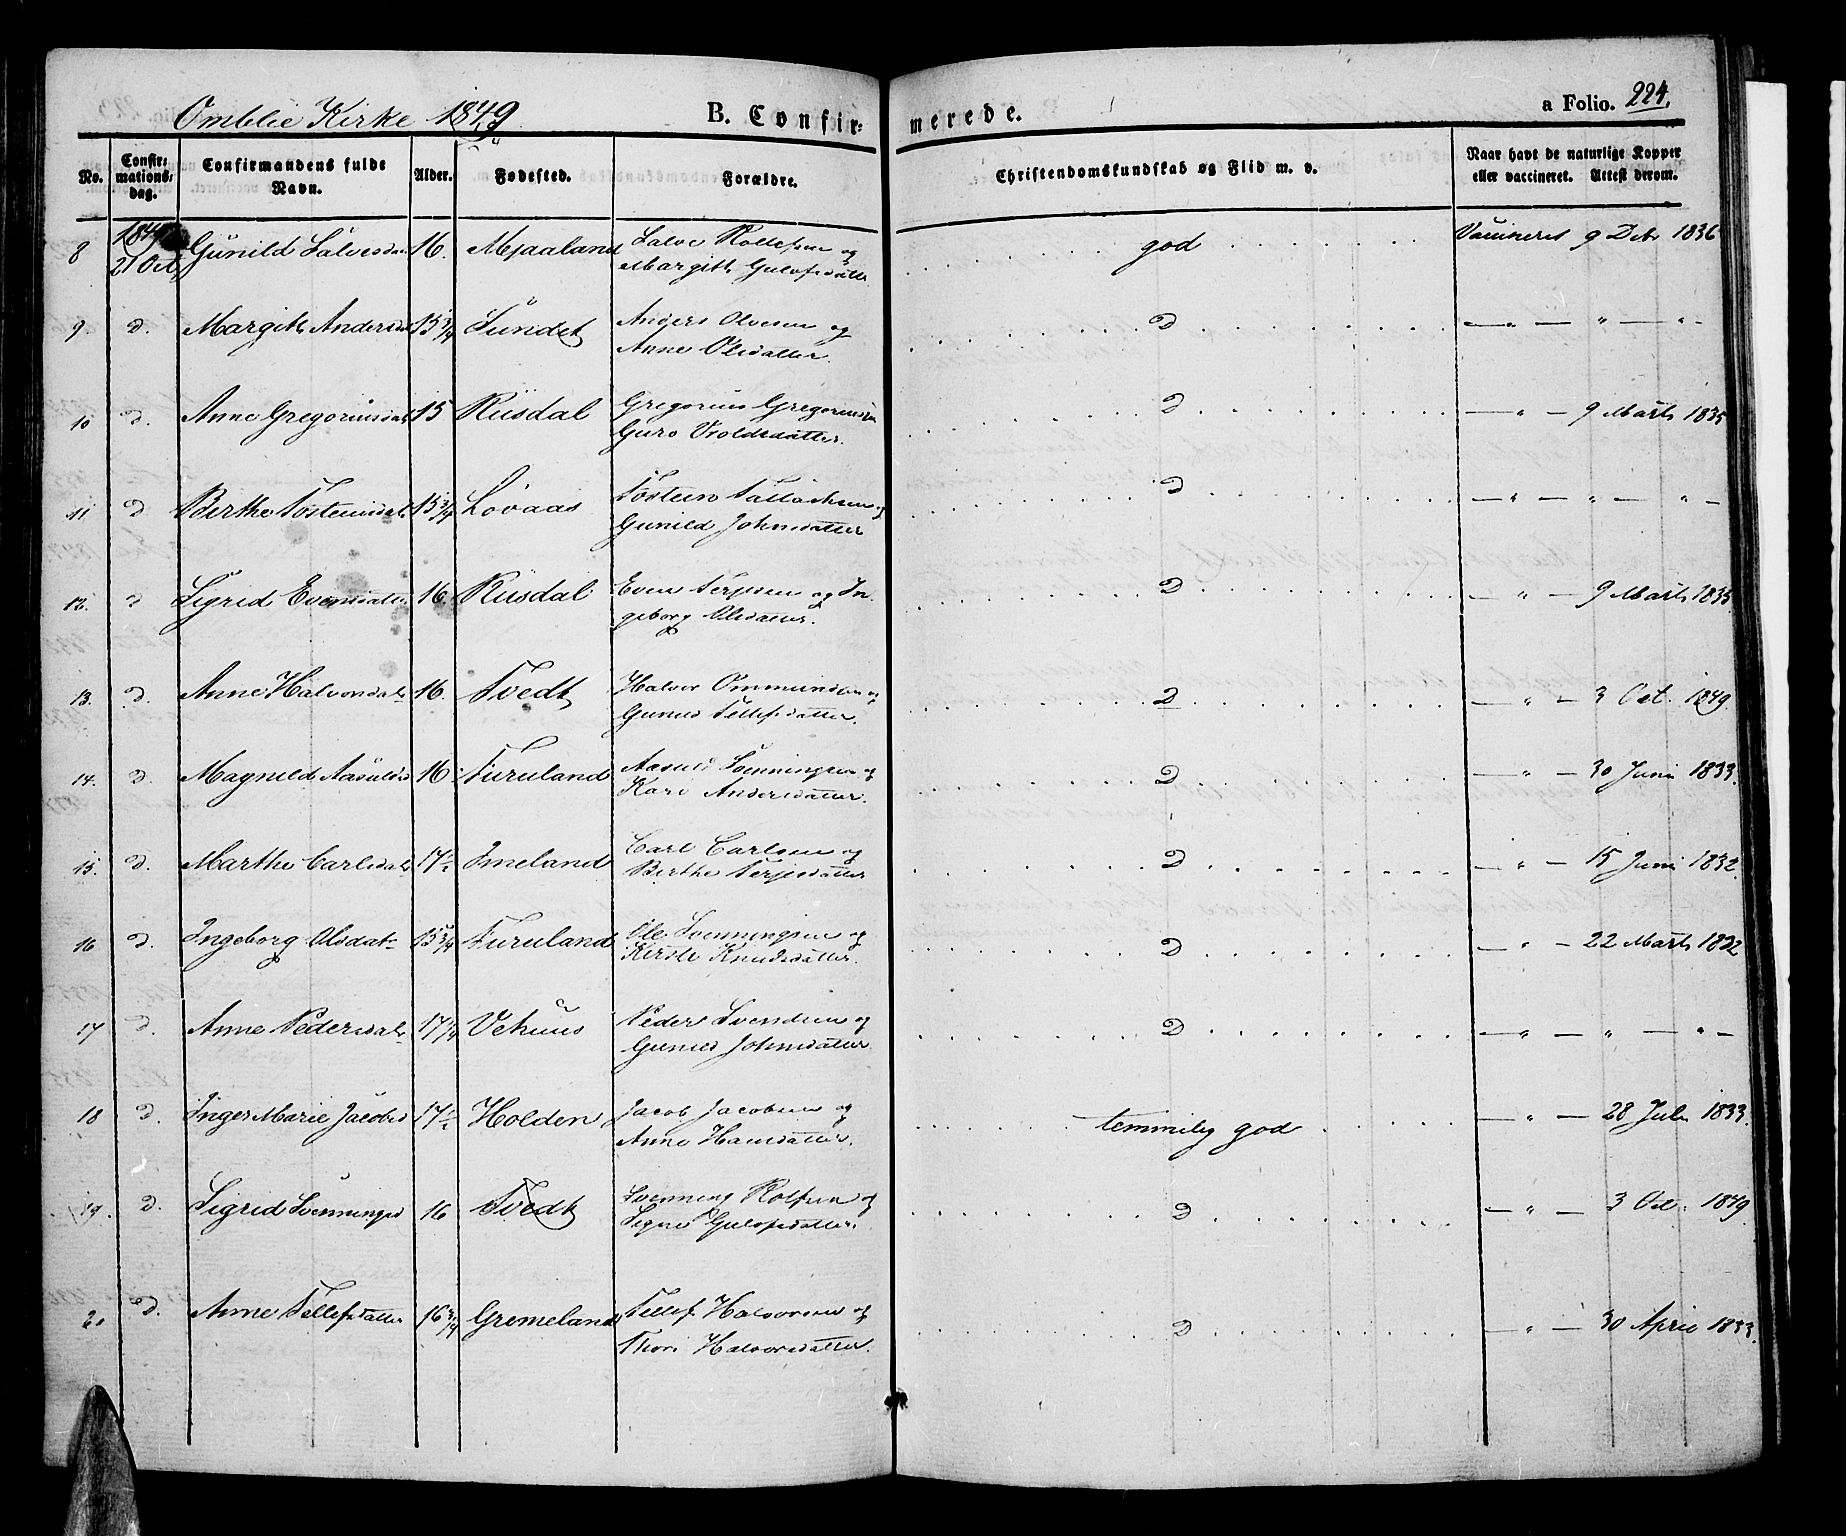 Omblie Kirke 1849
B. Confir-
merede.
a Folio. 224.
No.
Confir-
mations-
dag.
Confirmandens fulde
Navn.
Alder.
Fødested.
Forældre.
Christendomskundskab og Flid m. v.
Naar havt de naturlige Kopper
eller vaccineret. Attest derom.
8 1849 21 Oct Gunild Salvesdat 16. Mjaaland Salve Rollefsen og
Margith Gulofsdatter god Vaccineret 9 Debr 1836
9. d. Margith Andersdat 15 3/4 Sundet Anders Olvesen og
Anne Olsdatter. D — " — " — " —
10 d. Anne Gregoriusdat 15 Riisdal Gregorius Gregoriussen
Guro Vroldsdatter. D — " — 9 Marts 1835
11 d Berthe Tosteinsdat 15 3/4 Lovaas Tostein Tallachsen og
Gunild Johnsdatter D — " — " — " —
12. d Sigrid Evensdatter 16 Riisdal Even Terjesen og In-
geborg Olsdatter. D — " — 9 Marts 1835
13. d. Anne Halvorsdat 16. Tvedt Halvor Ommundsen og
Gunild Tellefsdatter. D — " — 3 Oct. 1849.
14. d. Magnild Aasulds 16 Furuland Aasuld Svenningsen og
Kari Andersdatter. D — " — 30 Juni 1833.
15. d. Marthe Carlsdat 17 1/2 Imeland Carl Carlsen og
Berthe Terjesdatter D — " — 15 Juni 1832.
16 d. Ingeborg Olsdat 15 3/4 Furuland Ole Svenningsen og
Kirste Knudsdatter. D — " — 22 Marts
17 d. Anne Pedersdat 17 1/4 Vehuus Peder Svendsen og
Gunild Johnsdatter D — " — " — " —
18 d. Inger Marie Jacobsd 17 1/2 Holden Jacob Jacobsen og
Anne Hansdatter. temmelig god — " — 28 Juli 1833.
19. d. Sigrid Svenningsd 16 Tvedt Svenning Rolfsen og
Signe Gulofsdatter. D — " — 3 Oct. 1849.
20 d. Anne Tellefsdatter 16 3/4 Gremeland Tellef Halvorsen og
Thori Halvorsdatter. D — " — 30 April 1833.